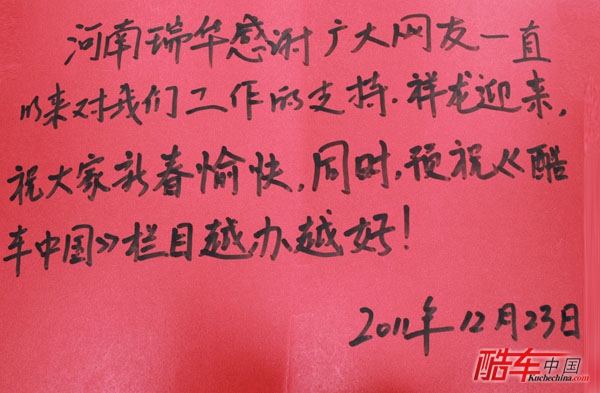 河南瑞华感谢广大网友一直
以来对我们工作的支持.祥龙迎来,
祝大家新春愉快,同时,预祝《酷
车中国》栏目越办越好!
2011年12月23日
酷车中国
Kuchechina.com